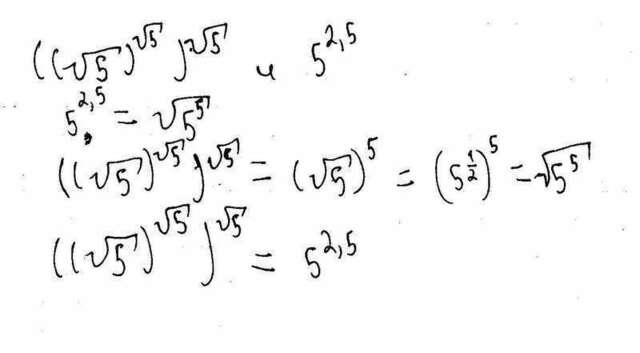 ((√5)^√5)^√5 и 5^2,5
5^2,5 = √5^5
((√5)^√5)^√5 = (√5)^5 = (5^1/2)^5 = √5^5
((√5)^√5)^√5 = 5^2,5